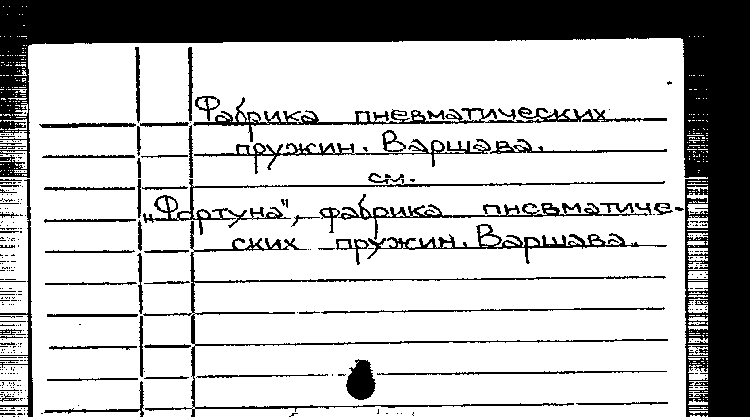 Фабрика пневматических
пружин. Варшава.
см.
„Фортуна", фабрика пневматиче-
ских пружин. Варшава.